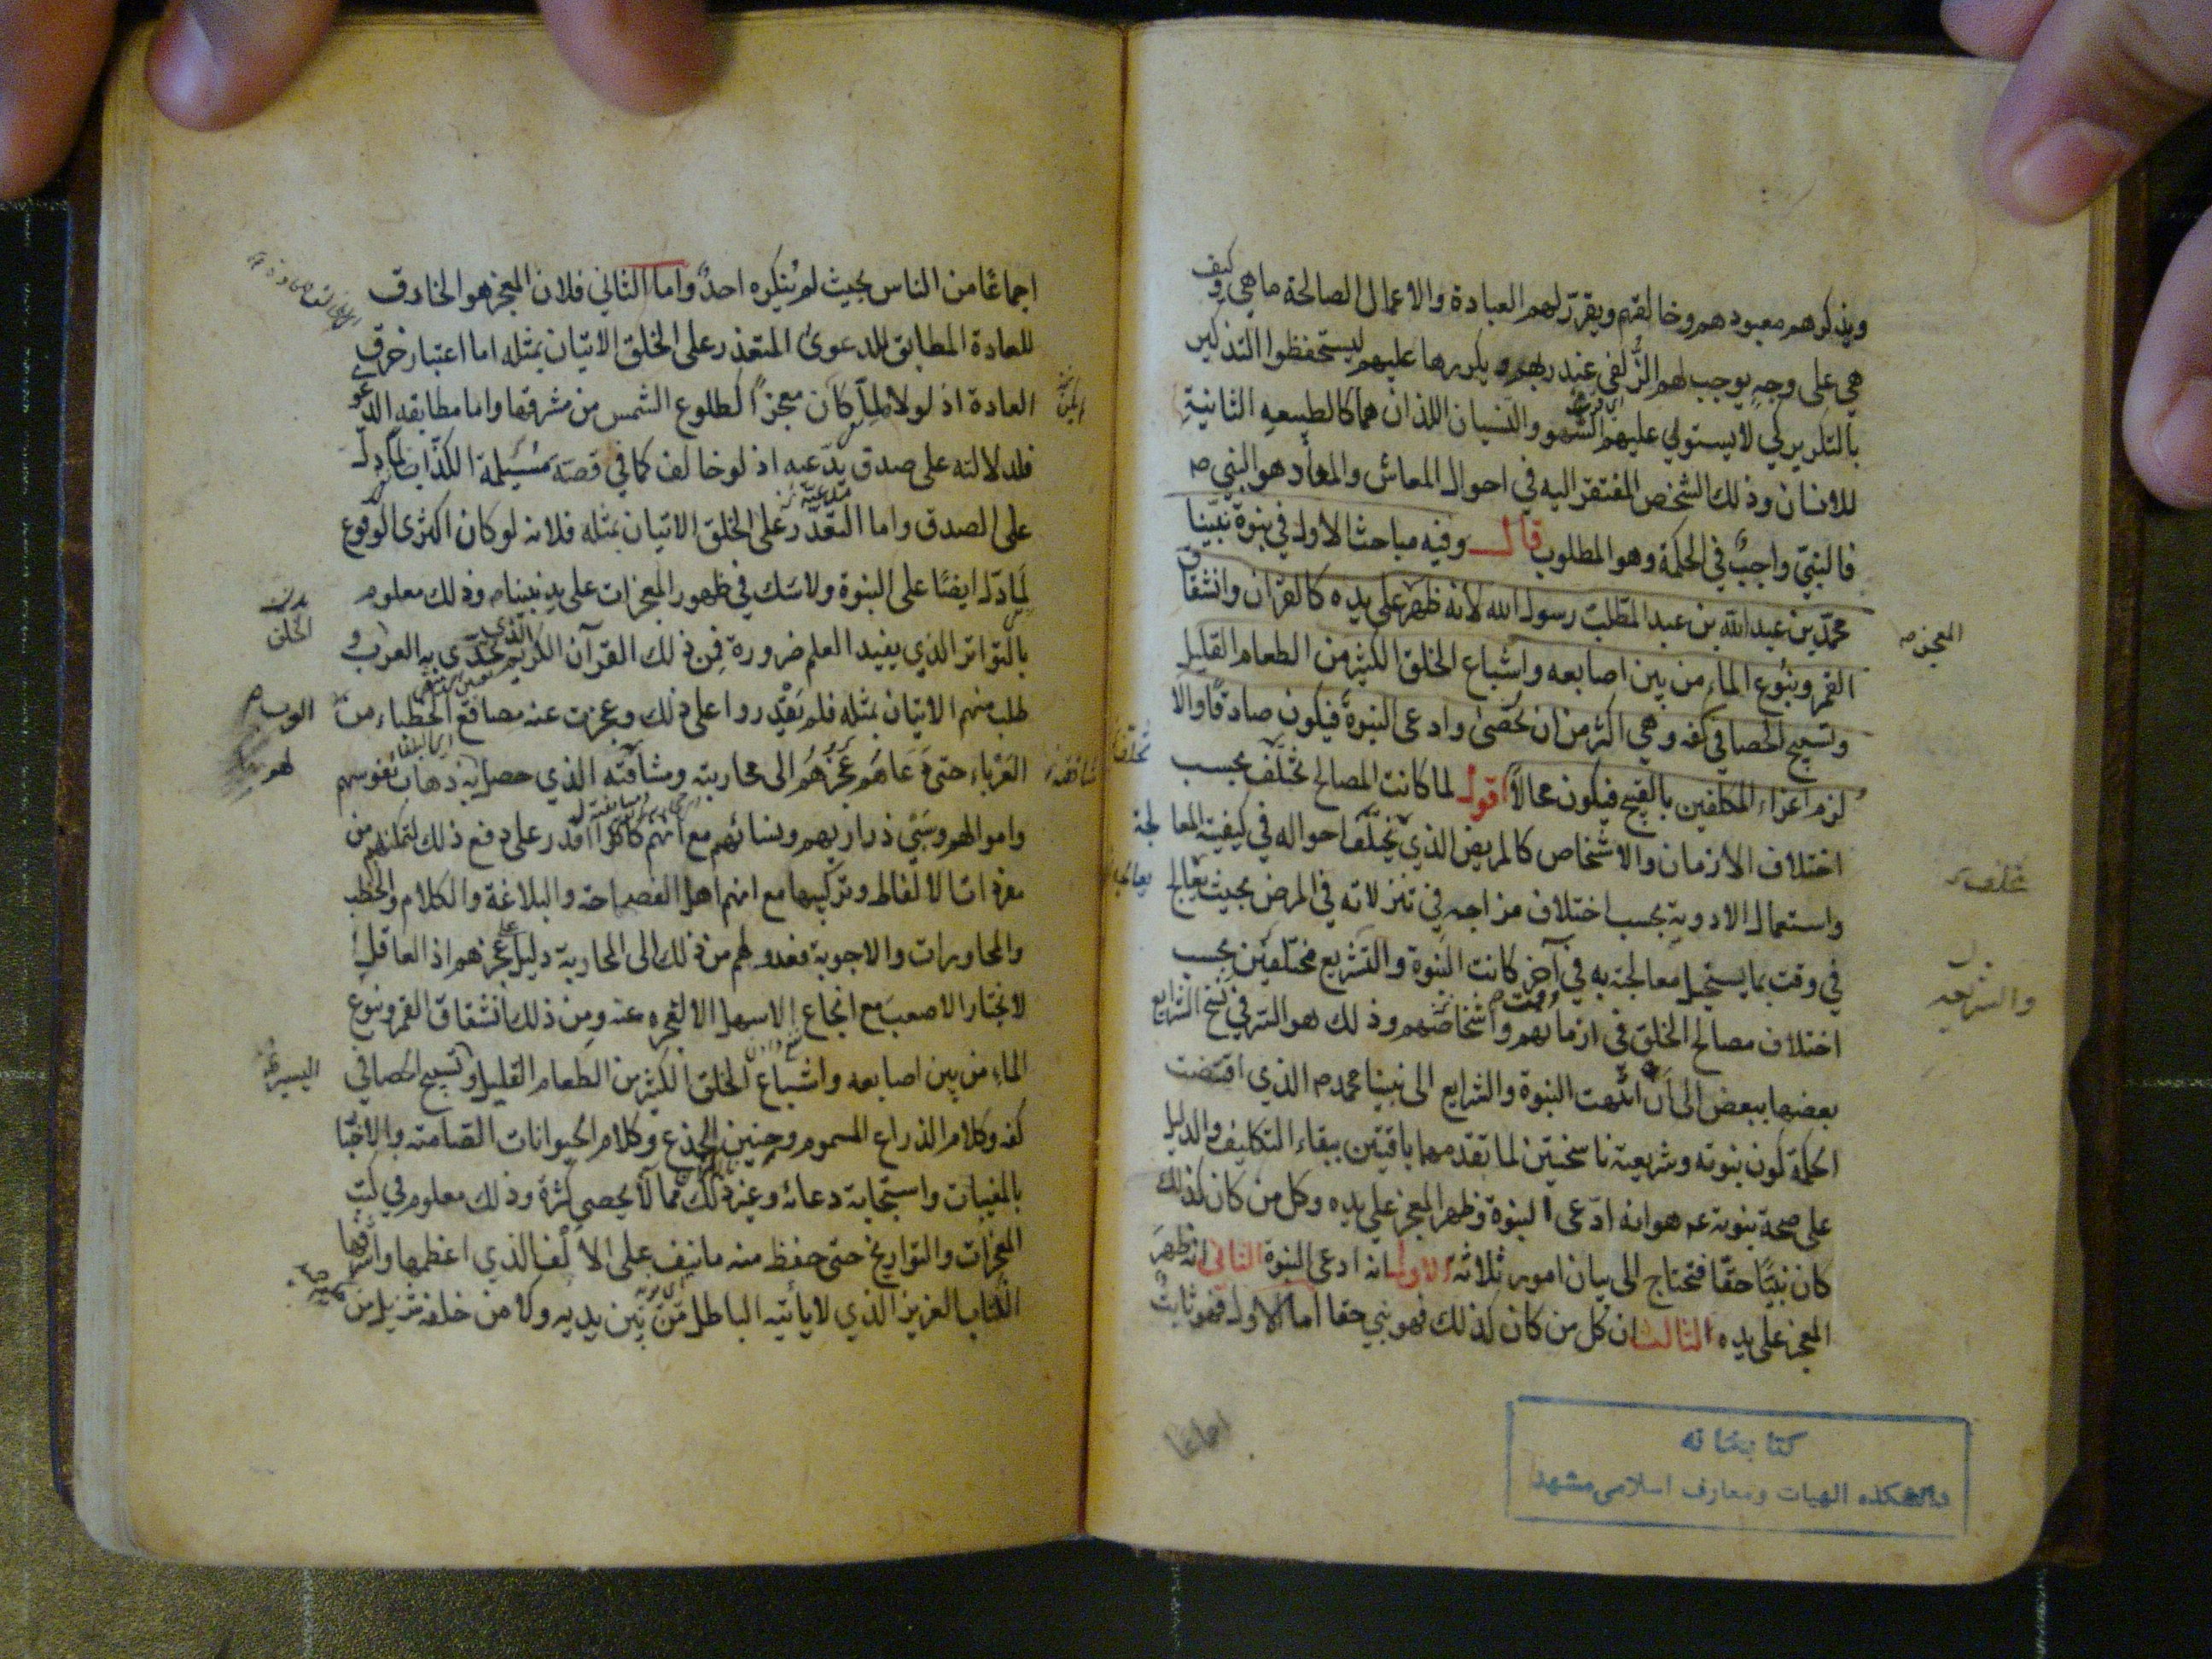 ويذكرهم معبودهم وخالقهم ويقرر لهم العبادة والاعمال الصالحة ما هي وكيف
هي على وجهٍ يوجب لهم الزُّلفى عند ربهم ويكررها عليهم ليستحفظوا التذكير
بالتكرير لكي لا يستولي عليهم السَّهو والنسيان اللذان هما كالطبيعه الثانيةِ
للانسان وذلك الشخص المفتقر اليه في احوال المعاش والمعاد هو النبي ص
فالنبيّ واجبٌ في الحكمة وهو المطلوب قال وفيه مباحث الاول في نبوة نبيّنا
محمّد بن عبد الله بن عبد المطّلب رسول الله لانه ظهر على يده كالقران وانشقاق
المعجز ص
القمر ونبُوع الماءِ من بين اصابعه واشباع الخلق الكثير من الطعام القليل
وتسبيح الحصا في كفه وهي اكثر من ان تحُصىٰ وادعى النبوة فيكون صادقًا والا
لزم اغراء المكلفين بالقبيح فيكون محالًا اقول لما كانت المصالح تختلف بحسب
اختلاف الازمان والاشخاص كالمريض الذي يختلف احواله في كيفية المعالجة
واستعمال الادوية بحسب اختلاف مزاجه في تنزلاته في المرض بحيث يعالج
في وقت بما يستحيل معالجته به في آخر كانت النبوة والتشريع مختلفين بحسب
اختلاف مصالح الخلق في ازمانهم واشخاصهم وذلك هو السّر في نسخ الشرايع
والشريعه
بعضها ببعض الى ان انتهت النبوة والشرايع الى نبينا محمد ص الذي اقتضت
الحكمة كون نبوته وشريعته ناسختين لما تقدمهما باقيتين ببقاء التكليف والدليل
على صحة نبوته عم هو انه ادّعى النبوة وظهر المعجز على يده وكل من كان كذلك
كان نبيًا حقًّا فتحتاج الى بيان امور ثلاثة الاول انه ادعى النبوة الثاني انه ظهرَ
المعجز على يده الثالث ان كل من كان كذلك فهو نبي حقا اما الاول فهو ثابتٌ
اجماعا
كتابخانه
دانشكده الهيات ومعارف اسلامى مشهد
اجماعًا من الناس بحيث لم يُنكره احدٌ واما الثاني فلان المعجز هو الخارق
للعادة المطابق للدعوىٰ المتعذر على الخلق الاتيان بمثله اما اعتبار خرق
العادة اذ لولا لما كان معجزًا كطلوع الشمس من مشرقها واما مطابقه الدعوى
فلدلالته على صدق يدّعيه اذ لو خالف كما في قصّة مُسَيلمة الكذّاب لما دل
على الصدق واما التعذّر على الخلق الاتيان بمثله فلانه لو كان اكثرى الوقوع
لما دل ايضًا على النبوة ولا شك في ظهور المعجزات على يد نبينا ص وذلك معلوم
بالتواتر الذي يفيد العلم ضرورة فمن ذلك القرآن الكريم الذي تحدّى به العرب و
طلب منهم الاتيان بمثله فلم يَقْدِروا على ذلك وعجزت عنه مصاقع الخطباء من
العَرْباء حتى دَعَاهُم عَجْزهُم الى محاربته ومشاقته الذي حصل به ذهاب نفوسهم
واموالهم وسَبْي ذراريهم ونسائهم مع انهم كانوا اقدر على دفع ذلك لتمكنهم من
مفردات الالفاظ وتركيبها مع انهم اهل الفصاحة والبلاغة والكلام والخطب
والمحاورات والاجوبة فعدولهم من ذلك الى المحاربة دليل على عجزهم اذ العاقل
لا يختار الاصعبَ مع انجاع الاسهل الا لعجزه عنه ومن ذلك انشقاق القمر ونبوع
الماءِ من بين اصابعه واشباع الخلق الكثير من الطعام القليل وتسبيح الحصا في
كفه وكلام الذراع المسموم وحنين الجذع وكلام الحيوانات الصامته والاخبا
بالمغيبات واستجابة دعائه وغير ذلك مما لا يحصى كثرة وذلك معلوم في كتب
المعجزات والتواريخ حتى حفظ منه ما نيف على الالف الذي اعظمها واشرفها
الكتاب العزيز الذي لا يأتيه الباطل من بين يديه ولا من خلفه تنزيل من